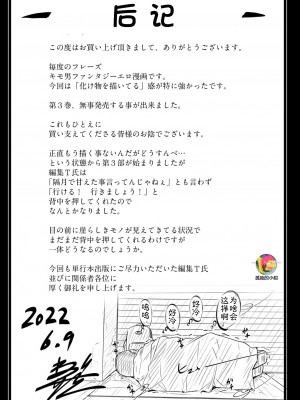 后记
この度はお買い上げ頂きまして、ありがとうございます。
毎度のフレーズ
キモ男ファンタジーエロ漫画です。
今回は「化け物を描いてる」感が特に強かったです。
第3巻、無事発売する事が出来ました。
これもひとえに
買い支えてくださる皆様のお陰でございます。
正直もう描く事ないんだがどうすんべ…
という状態から第3部が始まりましたが
編集T氏は
「隔月で甘えた事言ってんじゃねぇ」とも言わず
「行ける！ 行きましょう！」と
背中を押してくれたので
なんとかなりました。
目の前に崖らしきモノが見えてきてる状況で
まだまだ背中を押してくれるわけですが
一体どうなるのでしょうか。
今回も単行本出版にご尽力いただいた編集T氏
並びに関係者各位に
厚く御礼を申し上げます。
2022
6.9
为啥会
这样啊
好冷
好冷
呜呜